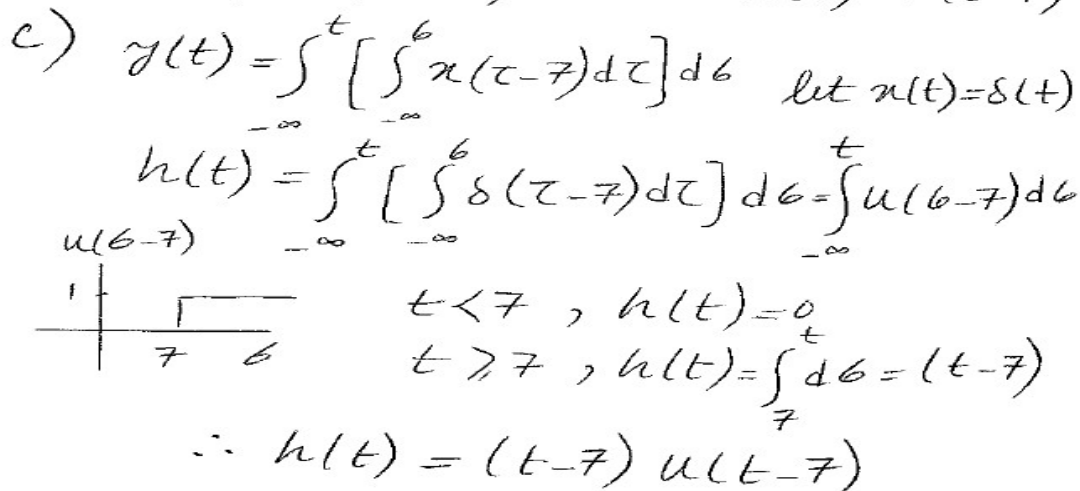 c) y(t) = ∫_{-∞}^{t} [∫_{-∞}^{σ} x(τ-7)dτ]dσ let x(t)=δ(t)
h(t) = ∫_{-∞}^{t} [∫_{-∞}^{σ} δ(τ-7)dτ] dσ = ∫_{-∞}^{t} u(σ-7)dσ
u(σ-7)
1
7 σ
t<7 , h(t)=0
t⩾7 , h(t)=∫_{7}^{t} dσ = (t-7)
∴ h(t) = (t-7) u(t-7)